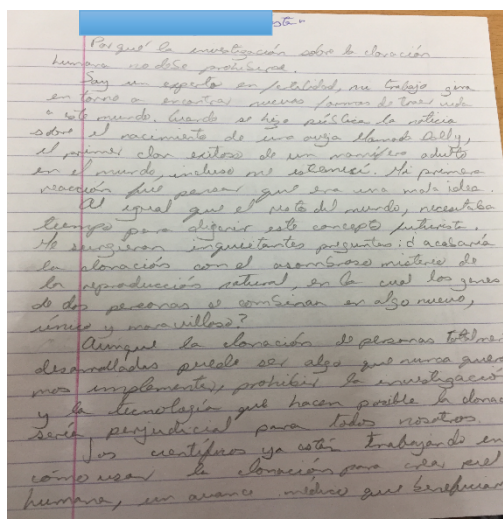 Porqué la investigación sobre la clonación
humana no debe prohibirse.
Soy un experto en fertilidad, mi trabajo gira
en torno a encontrar nuevas formas de traer vida
a este mundo. Cuando se hizo pública la noticia
sobre el nacimiento de una oveja llamada Dolly,
el primer clon exitoso de un mamífero adulto
en el mundo, incluso me estremecí. Mi primera
reacción fue pensar que era una mala idea.
Al igual que el resto del mundo, necesitaba
tiempo para digerir este concepto futurista.
Me surgieron inquietantes preguntas: ¿acabaría
la clonación con el asombroso misterio de
la reproducción natural, en la cual los genes
de dos personas se combinan en algo nuevo,
único y maravilloso?
Aunque la clonación de personas
desarrolladas puede ser algo que nunca
mos implementar, prohibir la investigación
y la tecnología que hacen posible la
sería perjudicial para todos nosotros.
Los científicos ya están trabajando en
cómo usar la clonación para crear piel
humana, un avance médico que